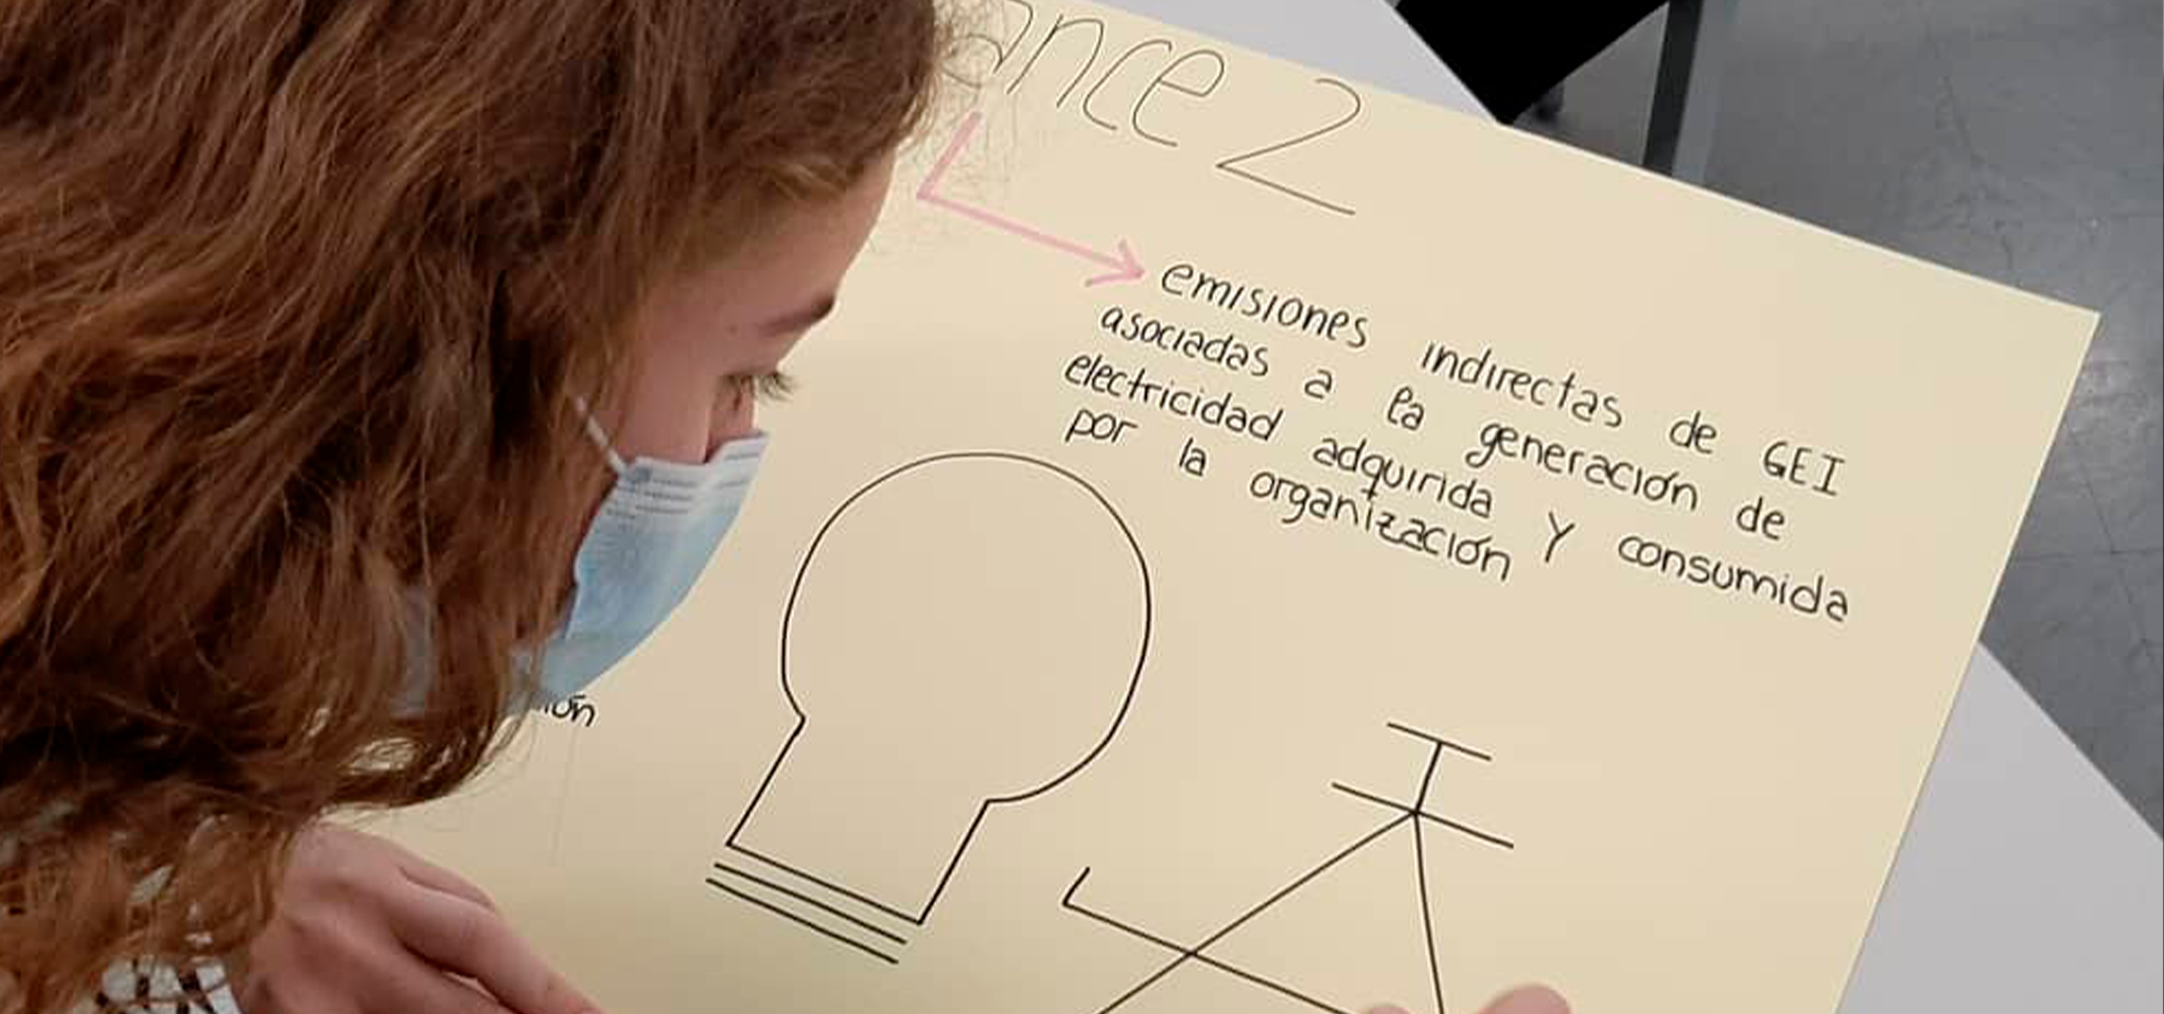 ance 2
emisiones indirectas de GEI
asociadas a la generación de
electricidad adquirida y consumida
por la organización